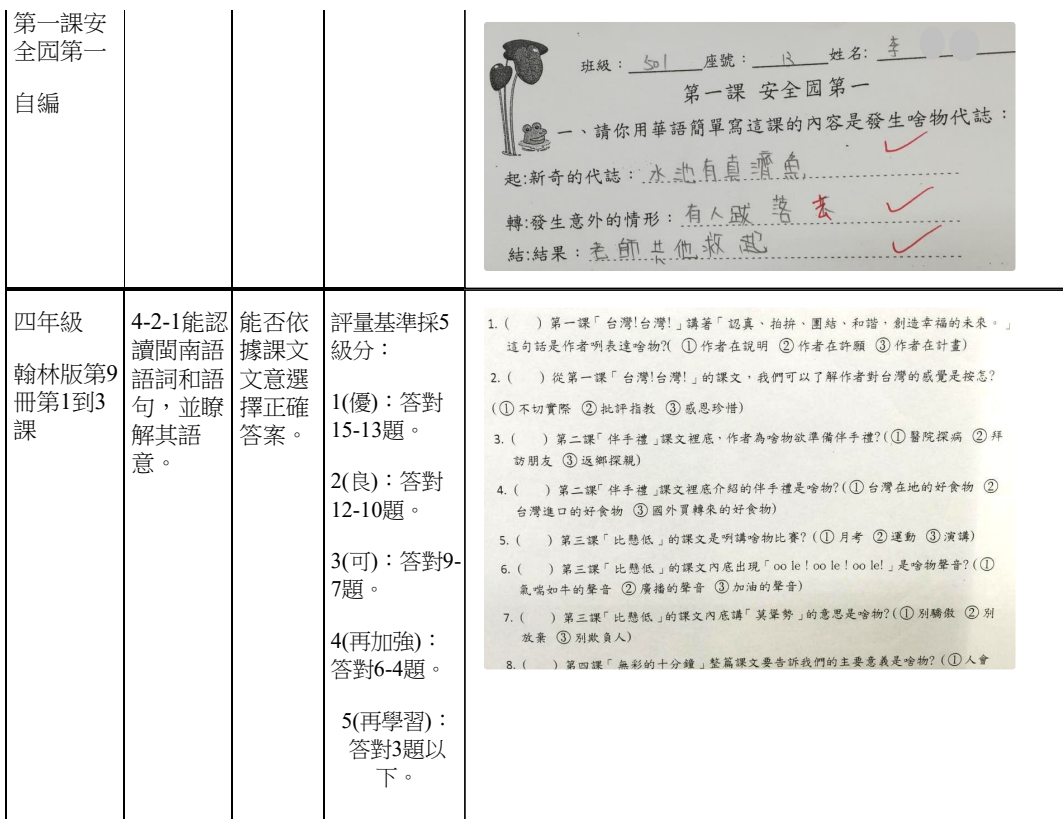 第一課安
全囥第一
自編
班級：501 座號：13 姓名：李
第一課 安全囥第一
一、請你用華語簡單寫這課的內容是發生啥物代誌：
起:新奇的代誌：水池有真濟魚
轉:發生意外的情形：有人跋落去
結:結果：老師共他救起
四年級
翰林版第9
冊第1到3
課
4-2-1能認
讀閩南語
語詞和語
句，並瞭
解其語
意。
能否依
據課文
文意選
擇正確
答案。
評量基準採5
級分：
1(優)：答對
15-13題。
2(良)：答對
12-10題。
3(可)：答對9-
7題。
4(再加強)：
答對6-4題。
5(再學習)：
答對3題以
下。
1. (　) 第一課「台灣!台灣!」講著「認真、拍拚、團結、和諧，創造幸福的未來。」
這句話是作者咧表達啥物?( ①作者在說明 ②作者在許願 ③作者在計畫)
2. (　) 從第一課「台灣!台灣!」的課文，我們可以了解作者對台灣的感覺是按怎?
(①不切實際 ②批評指教 ③感恩珍惜)
3. (　) 第二課「伴手禮」課文裡底，作者為啥物欲準備伴手禮?(①醫院探病 ②拜
訪朋友 ③返鄉探親)
4. (　) 第二課「伴手禮」課文裡底介紹的伴手禮是啥物?(①台灣在地的好食物 ②
台灣進口的好食物 ③國外買轉來的好食物)
5. (　) 第三課「比懸低」的課文是咧講啥物比賽? (①月考 ②運動 ③演講)
6. (　) 第三課「比懸低」的課文內底出現「oo le ! oo le ! oo le!」是啥物聲音? (①
氣喘如牛的聲音 ②廣播的聲音 ③加油的聲音)
7. (　) 第三課「比懸低」的課文內底講「莫聳勢」的意思是啥物?(①別驕傲 ②別
放棄 ③別欺負人)
8. (　) 第四課「無彩的十分鐘」整篇課文要告訴我們的主要意義是啥物? (①人會